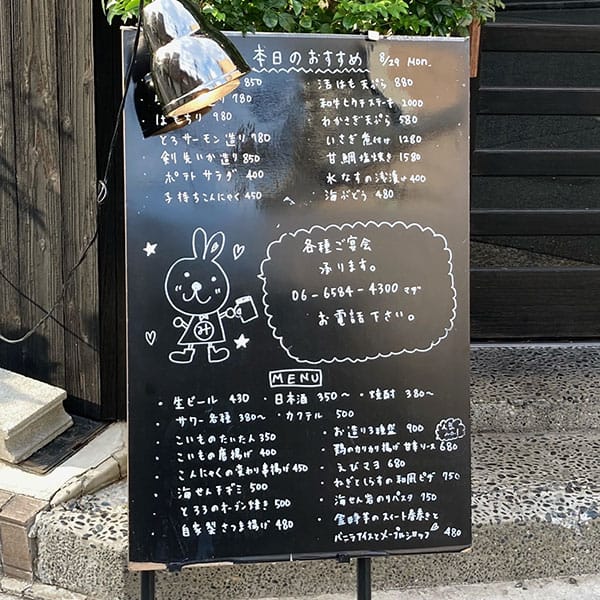 本日のおすすめ 8/29 Mon.
850
780
はもちり 980
とろサーモン造り 780
剣先いか造り 850
ポテトサラダ 400
子持ちこんにゃく 450
・活はも天ぷら 880
・和牛ヒウチステーキ 2000
・わかさぎ天ぷら 580
・いさぎ煮付け 1280
・甘鯛塩焼き 1580
・水なすの浅漬け 400
・海ぶどう 480
各種ご宴会
承ります。
06-6584-4300マデ
お電話下さい。
み
MENU
・生ビール 430 ・日本酒 350〜 ・焼酎 380〜
・サワー各種 380〜 ・カクテル 500
・こいものたいたん 350
・こいもの唐揚げ 400
・こんにゃくの変わり串揚げ 450
・海せんチヂミ 500
・とろろのオーブン焼き 500
・自家製さつま揚げ 480
・お造り3種盛 900
・鶏のカリカリ揚げ 甘辛ソース 680
・えびマヨ 680
・ねぎとしらすの和風ピザ 750
・海せん岩のりパスタ 750
・金時芋のスイート春巻きと
バニラアイスとメープルシロップ 480